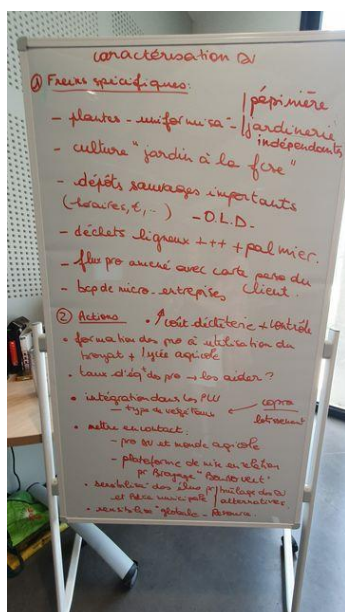 caractérisation DV
① Freins spécifiques:
- plantes - uniformisa° - | pépinière
| jardinerie
indépendantes
- culture "jardin à la fçse"
- dépôts sauvages importants
(horaires, €, ...) - O.L.D -
- déchets ligneux +++ + palmier.
- flux pro amené avec carte perso du
client.
- bcp de micro-entreprises
② Actions • ↗ coût déchèterie + contrôle
• formation des pro à utilisation du
broyat + lycée agricole
• taux d'éq° des pro → les aider ?
• intégration dans les PLU
- type de végétaux ← copro
lotissement
• mettre en contact:
- pro DV et monde agricole
- plateforme de mise en relation
pr Broyage "Bourse vert"
• sensibilisa° des élus pr brûlage des DV
et Police municipale / alternatives.
• sensibilisa° globale -